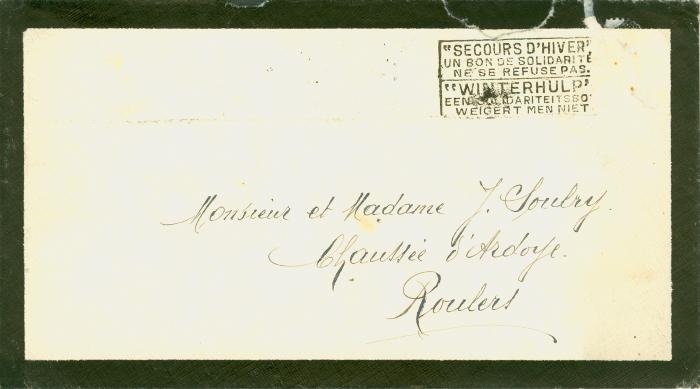 "SECOURS D'HIVER"
UN BON DE SOLIDARITÉ
NE SE REFUSE PAS.
"WINTERHULP"
EEN SOLIDARITEITSBO
WEIGERT MEN NIET
Monsieur et Madame J. Soubry.
Chaussée d'Ardoye.
Roulers